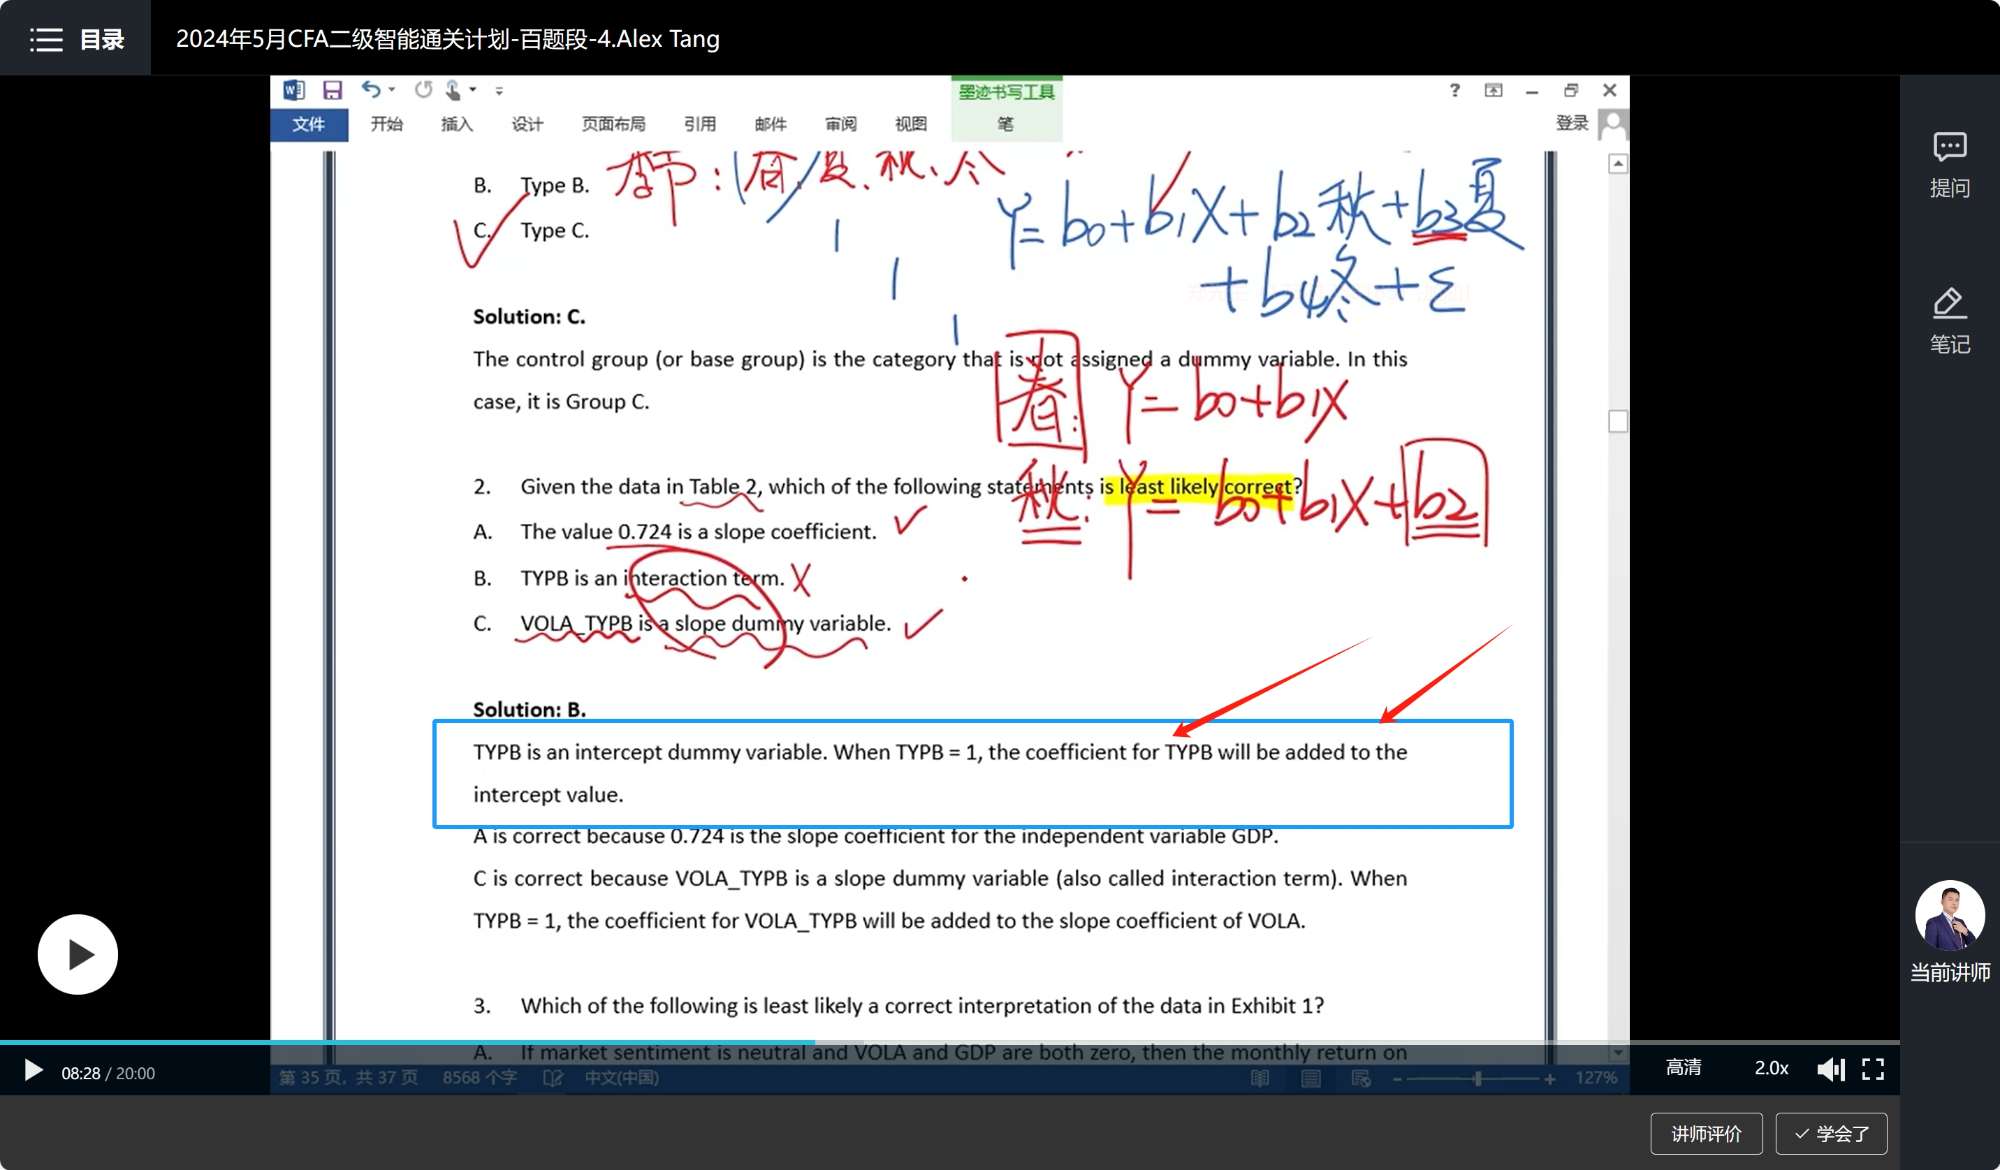 目录
2024年5月CFA二级智能通关计划-百题段-4.Alex Tang
墨迹书写工具
文件 开始 插入 设计 页面布局 引用 邮件 审阅 视图 笔
登录
提问
笔记
B. Type B.
季节：(春/夏、秋、冬
Y=b0+b1X+b2秋+b3夏
+b4冬+ε
C. Type C.
1
1
1
Solution: C.
The control group (or base group) is the category that is not assigned a dummy variable. In this
case, it is Group C.
春: Y=b0+b1X
2. Given the data in Table 2, which of the following statements is least likely correct?
秋: Y=b0+b1X+b2
A. The value 0.724 is a slope coefficient.
B. TYPB is an interaction term. X
C. VOLA_TYPB is a slope dummy variable.
Solution: B.
TYPB is an intercept dummy variable. When TYPB = 1, the coefficient for TYPB will be added to the
intercept value.
A is correct because 0.724 is the slope coefficient for the independent variable GDP.
C is correct because VOLA_TYPB is a slope dummy variable (also called interaction term). When
TYPB = 1, the coefficient for VOLA_TYPB will be added to the slope coefficient of VOLA.
3. Which of the following is least likely a correct interpretation of the data in Exhibit 1?
A. If market sentiment is neutral and VOLA and GDP are both zero, then the monthly return on
当前讲师
08:28 / 20:00
第 35 页，共 37 页 8568 个字 中文(中国) 127%
高清 2.0x
讲师评价 学会了